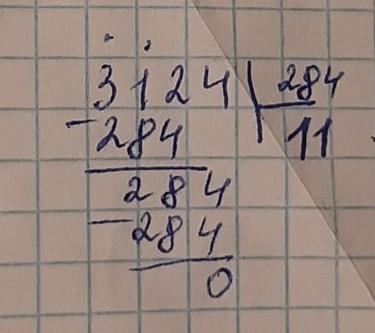 3124 284
- 284 11
284
- 284
0